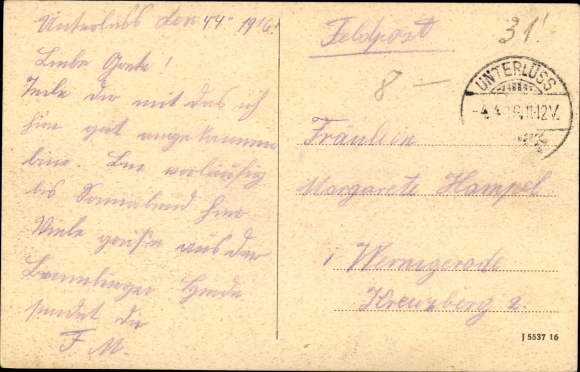 Unterlüss den 4.4. 1916.
Liebe Grete!
Teile dir mit das ich
hier gut angekommen
bin. Bin vorläufig
bis Sonnabend hier
Viele grüße aus der
Lüneburger Heide
sendet dir
F. M.
Feldpost
31!
8 —
UNTERLÜSS
-4.4.16.11-12V.
Fräulein
Margarete Hampel
Wernigerode
Kreuzberg 2.
J 5537 16